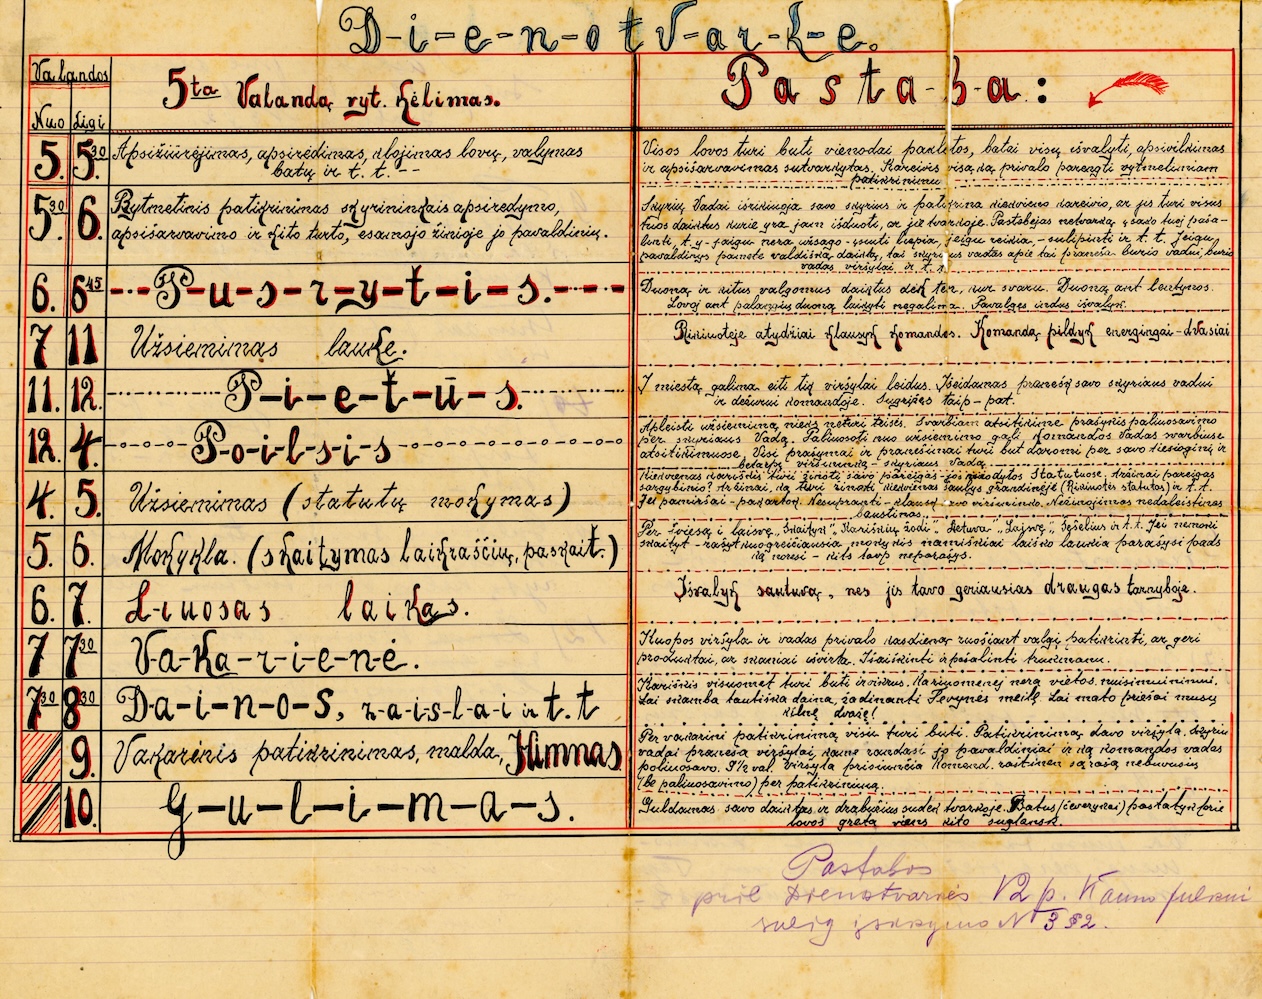 D-i-e-n-o-t-v-a-r-k-ė.
Valandos
Nuo Ligi
5ta Valandą ryt. kėlimas.
Pastaba:
5. 5.30 Apsižiūrėjimas, apsirėdimas, klojimas lovų, valymas
batų ir t. t. --
Visos lovos turi buti vienodai paklotos, batai visų išvalyti, apsivilkimas
ir apsišarvavimas sutvarkytas. Kareivis viską privalo parengti rytmetiniam
patikrinimui
5.30 6. Rytmetinis patikrinimas skyrininkais apsiredymo,
apsišarvavimo ir kito turto, esamojo žinioje jo pavaldinių.
Skyrių Vadai išrikiuoja savo skyrius ir patikrina kiekvieno kareivio, ar jis turi visus
tuos daiktus kurie yra jam išduoti, ar jie tvarkoje. Pastebėjas netvarką
pavaldinys pametė valdišką daiktą, tai skyriaus vadas apie tai praneša burio vadui, burio
vadas viršylai ir t. t.
6. 6.45 P-u-s-r-y-t-i-s.
Duoną ir kitus valgomus daiktus dėk ten, kur svaru. Duoną ant lentynos.
Lovoj ant palangių duoną laikyti negalima. Pavalgęs indus išvalyk.
7 11 Užsiėmimas lauke.
Rikiuotėje atydžiai klausyk komandos. Komandą pildyk energingai-dvasiai
11. 12. P-i-e-t-ū-s.
Į miestą galima eiti tik viršylai leidus. Išeidamas pranešk savo skyriaus vadui
ir dežurui komandoje. Sugrįžęs taip-pat.
12. 4. P-o-i-l-s-i-s
Apleisti užsiėmimą nieks neturi teisės. Svarbiam atsitikime prašykis paliuosavimo
per skyriaus Vadą. Paliuosoti nuo užsiėmimo gali Komandos Vadas svarbiuose
atsitikimuose. Visi prašymai ir pranešimai turi but daromi per savo tiesioginį ir
betarpį viršininką - skyriaus vadą.
4. 5. Užsiėmimas (statutų mokymas)
Kiekvienas kariškis turi žinoti savo pareigas - jos nurodytos Statutuose. Ar žinai pareigas
sargybinio? Ar žinai, ką turi žinoti kiekvienas šaulys grandinėje (Rikiuotės statutas) ir t. t.
Jei pamiršai - pakartok. Nesupranti - klausk savo viršininko. Nežinojimas nedaleistinas
baustinas.
5. 6. Mokykla. (skaitymas laikraščių, paskait.)
Per šviesą į laisvę. „Skaityk" „Kariškių žodį" „Lietuva" „Laisvę", Sešelius ir t. t. Jei nemoki
skaityt - rašyt kuogreičiausia mokykis namiškiai laiško laukia parašysi pads
ką norėsi - kits taip neparašys.
6. 7. L-iuosas laikas.
Išvalyk šautuvą, nes jis tavo geriausias draugas tarnyboje.
7 7.30 V-a-ka-r-i-e-n-ė.
Kuopos viršyla ir vadas privalo kasdieną ruošiant valgį patikrinti, ar geri
produktai, ar skaniai išvirta. Išaiškinti ir pašalinti trukumus.
7.30 8.30 D-a-i-n-o-s, ž-a-i-s-l-a-i ir t.t
Kariškis visuomet turi buti linksmas. Kariuomenėj nėra vietos nusiminimui.
Lai skamba tautiška daina, žadinanti Tėvynės meilę. Lai mato priešai musų
kilnę dvasę!
9. Vakarinis patikrinimas, malda, Himnas
Per vakarinį patikrinimą visi turi buti. Patikrinimą davo viršyla. Skyrių
vadai praneša viršylai, kame randasi jo pavaldiniai ir ką komandos vadas
paliuosavo. 9½ val viršyla prisiunčia Komend. raštinėn sąrašą nebuvusių
(be paliuosavimo) per patikrinimą.
10. G-u-l-i-m-a-s.
Guldamas savo daiktus ir drabužius sudėk tvarkoje. Batus (čeverykai) pastatyk prie
lovos greta viens kito suglausk.
Pastabos
prie Dienotvarkės V2 p. Kauno pulkui
sulig įsakymo N 352.